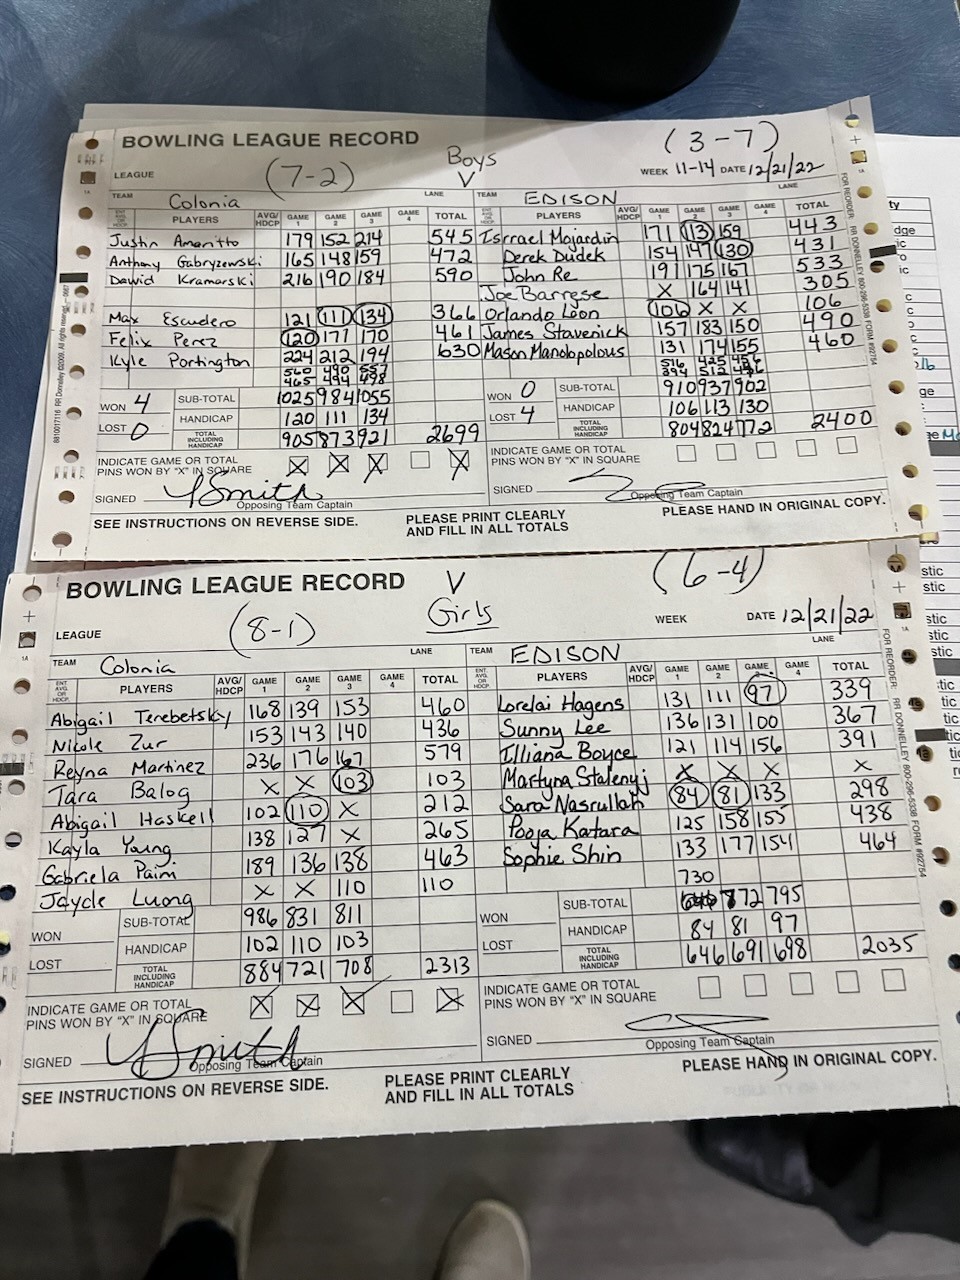 BOWLING LEAGUE RECORD
(3-7)
LEAGUE
(7-2)
Boys
V
WEEK 11-14 DATE 12/21/22
TEAM Colonia
LANE
TEAM EDISON
LANE
ENT. AVG. OR HDCP. PLAYERS AVG/HDCP GAME 1 GAME 2 GAME 3 GAME 4 TOTAL
ENT. AVG. OR HDCP. PLAYERS AVG/HDCP GAME 1 GAME 2 GAME 3 GAME 4 TOTAL
Justin Amaritto 179 152 214 545 Isrrael Mojardin 171 113 159 443
Anthony Gabryzewski 165 148 159 472 Derek Dudek 154 147 130 431
Dawid Kramarski 216 190 184 590 John Re 191 175 167 533
Joe Barrese X 164 141 305
Max Escudero 121 111 134 366 Orlando Leon 106 X X 106
Felix Perez 120 171 170 461 James Stavenick 157 183 150 490
Kyle Portington 224 212 194 630 Mason Manolopolous 131 174 155 460
560 490 557 516 425 456
465 494 498 394 512
WON 4 SUB-TOTAL 1025 984 1055
WON 0 SUB-TOTAL 910 937 902
LOST 0 HANDICAP 120 111 134
LOST 4 HANDICAP 106 113 130
TOTAL INCLUDING HANDICAP 905 873 921 2699
TOTAL INCLUDING HANDICAP 804 824 772 2400
INDICATE GAME OR TOTAL
PINS WON BY "X" IN SQUARE X X X X
INDICATE GAME OR TOTAL
PINS WON BY "X" IN SQUARE
SIGNED Y Smith
Opposing Team Captain
SIGNED
Opposing Team Captain
SEE INSTRUCTIONS ON REVERSE SIDE.
PLEASE PRINT CLEARLY
AND FILL IN ALL TOTALS
PLEASE HAND IN ORIGINAL COPY.
FOR REORDER: RR DONNELLEY 800-296-5338 FORM #92754
BOWLING LEAGUE RECORD
V
(6-4)
LEAGUE
(8-1)
Girls
WEEK DATE 12/21/22
TEAM Colonia
LANE
TEAM EDISON
LANE
ENT. AVG. OR HDCP. PLAYERS AVG/HDCP GAME 1 GAME 2 GAME 3 GAME 4 TOTAL
ENT. AVG. OR HDCP. PLAYERS AVG/HDCP GAME 1 GAME 2 GAME 3 GAME 4 TOTAL
Abigail Terebetsky 168 139 153 460 Lorelai Hagens 131 111 97 339
Nikole Zur 153 143 140 436 Sunny Lee 136 131 100 367
Reyna Martinez 236 176 167 579 Illiana Boyce 121 114 156 391
Tara Balog X X 103 103 Martyna Stalenyj X X X X
Abigail Haskell 102 110 X 212 Sara Nasrullah 84 81 133 298
Kayla Young 138 127 X 265 Pooja Katara 125 158 155 438
Gabriela Paim 189 136 138 463 Sophie Shin 133 177 154 464
Jaycie Luong X X 110 110
730
WON SUB-TOTAL 986 831 811
WON SUB-TOTAL 772 795
LOST HANDICAP 102 110 103
LOST HANDICAP 84 81 97
TOTAL INCLUDING HANDICAP 884 721 708 2313
TOTAL INCLUDING HANDICAP 646 691 698 2035
INDICATE GAME OR TOTAL
PINS WON BY "X" IN SQUARE X X X X
INDICATE GAME OR TOTAL
PINS WON BY "X" IN SQUARE
SIGNED Y Smith
Opposing Team Captain
SIGNED
Opposing Team Captain
SEE INSTRUCTIONS ON REVERSE SIDE.
PLEASE PRINT CLEARLY
AND FILL IN ALL TOTALS
PLEASE HAND IN ORIGINAL COPY.
FOR REORDER: RR DONNELLEY 800-296-5338 FORM #92754